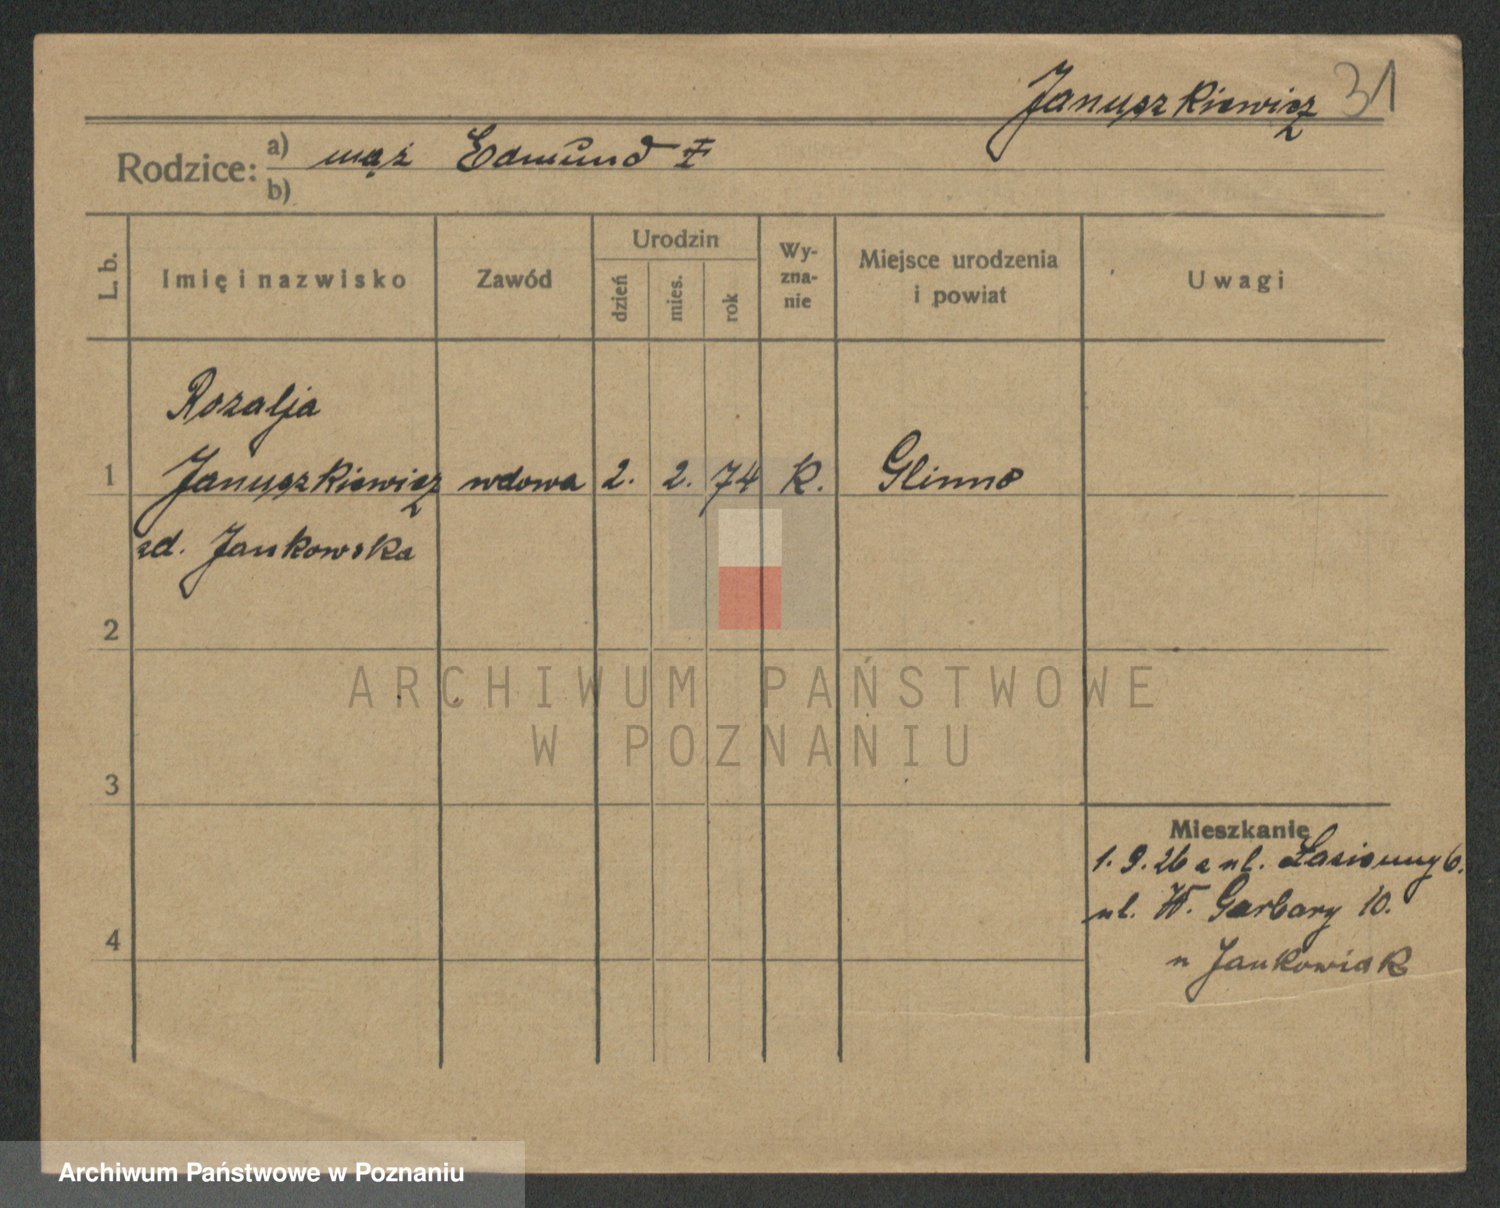 Januszkiewicz 31
Rodzice: a) mąż Edmund ‡
b)
L. b. Imię i nazwisko Zawód Urodzin dzień mies. rok Wy-zna-nie Miejsce urodzenia i powiat Uwagi
Rozalja
1 Januszkiewicz wdowa 2. 2. 74 k. Glinno
zd. Jankowska
2
ARCHIWUM PAŃSTWOWE
W POZNANIU
3
Mieszkanie
1. 9. 26 z ul. 6.
ul. W. Garbary 10.
4
u Jankowiak
Archiwum Państwowe w Poznaniu